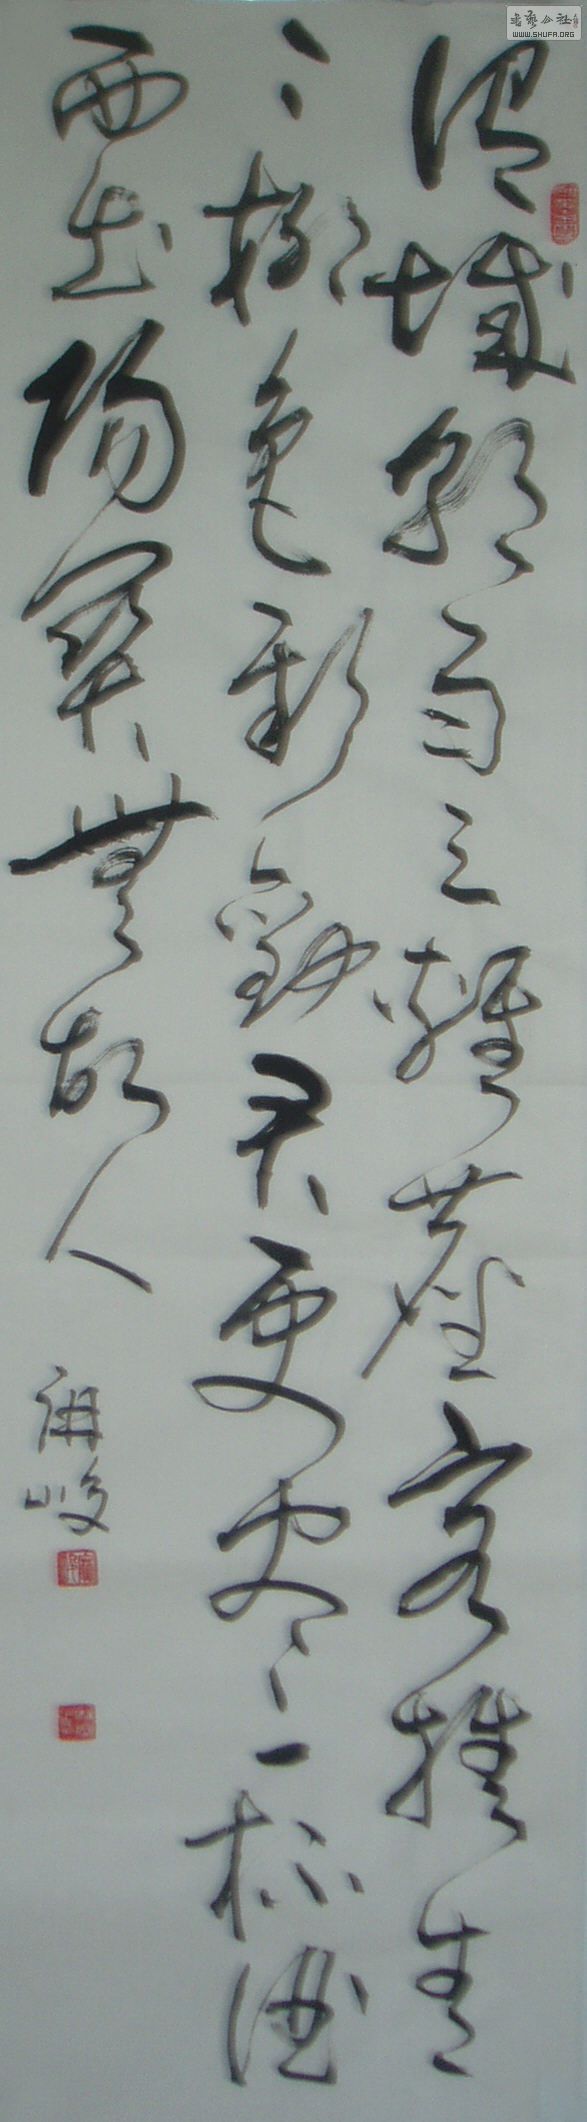 渭城朝雨浥輕塵客舍青
々柳色新勸君更盡一杯酒
西出陽關無故人
峻
書藝公社
WWW.SHUFA.ORG